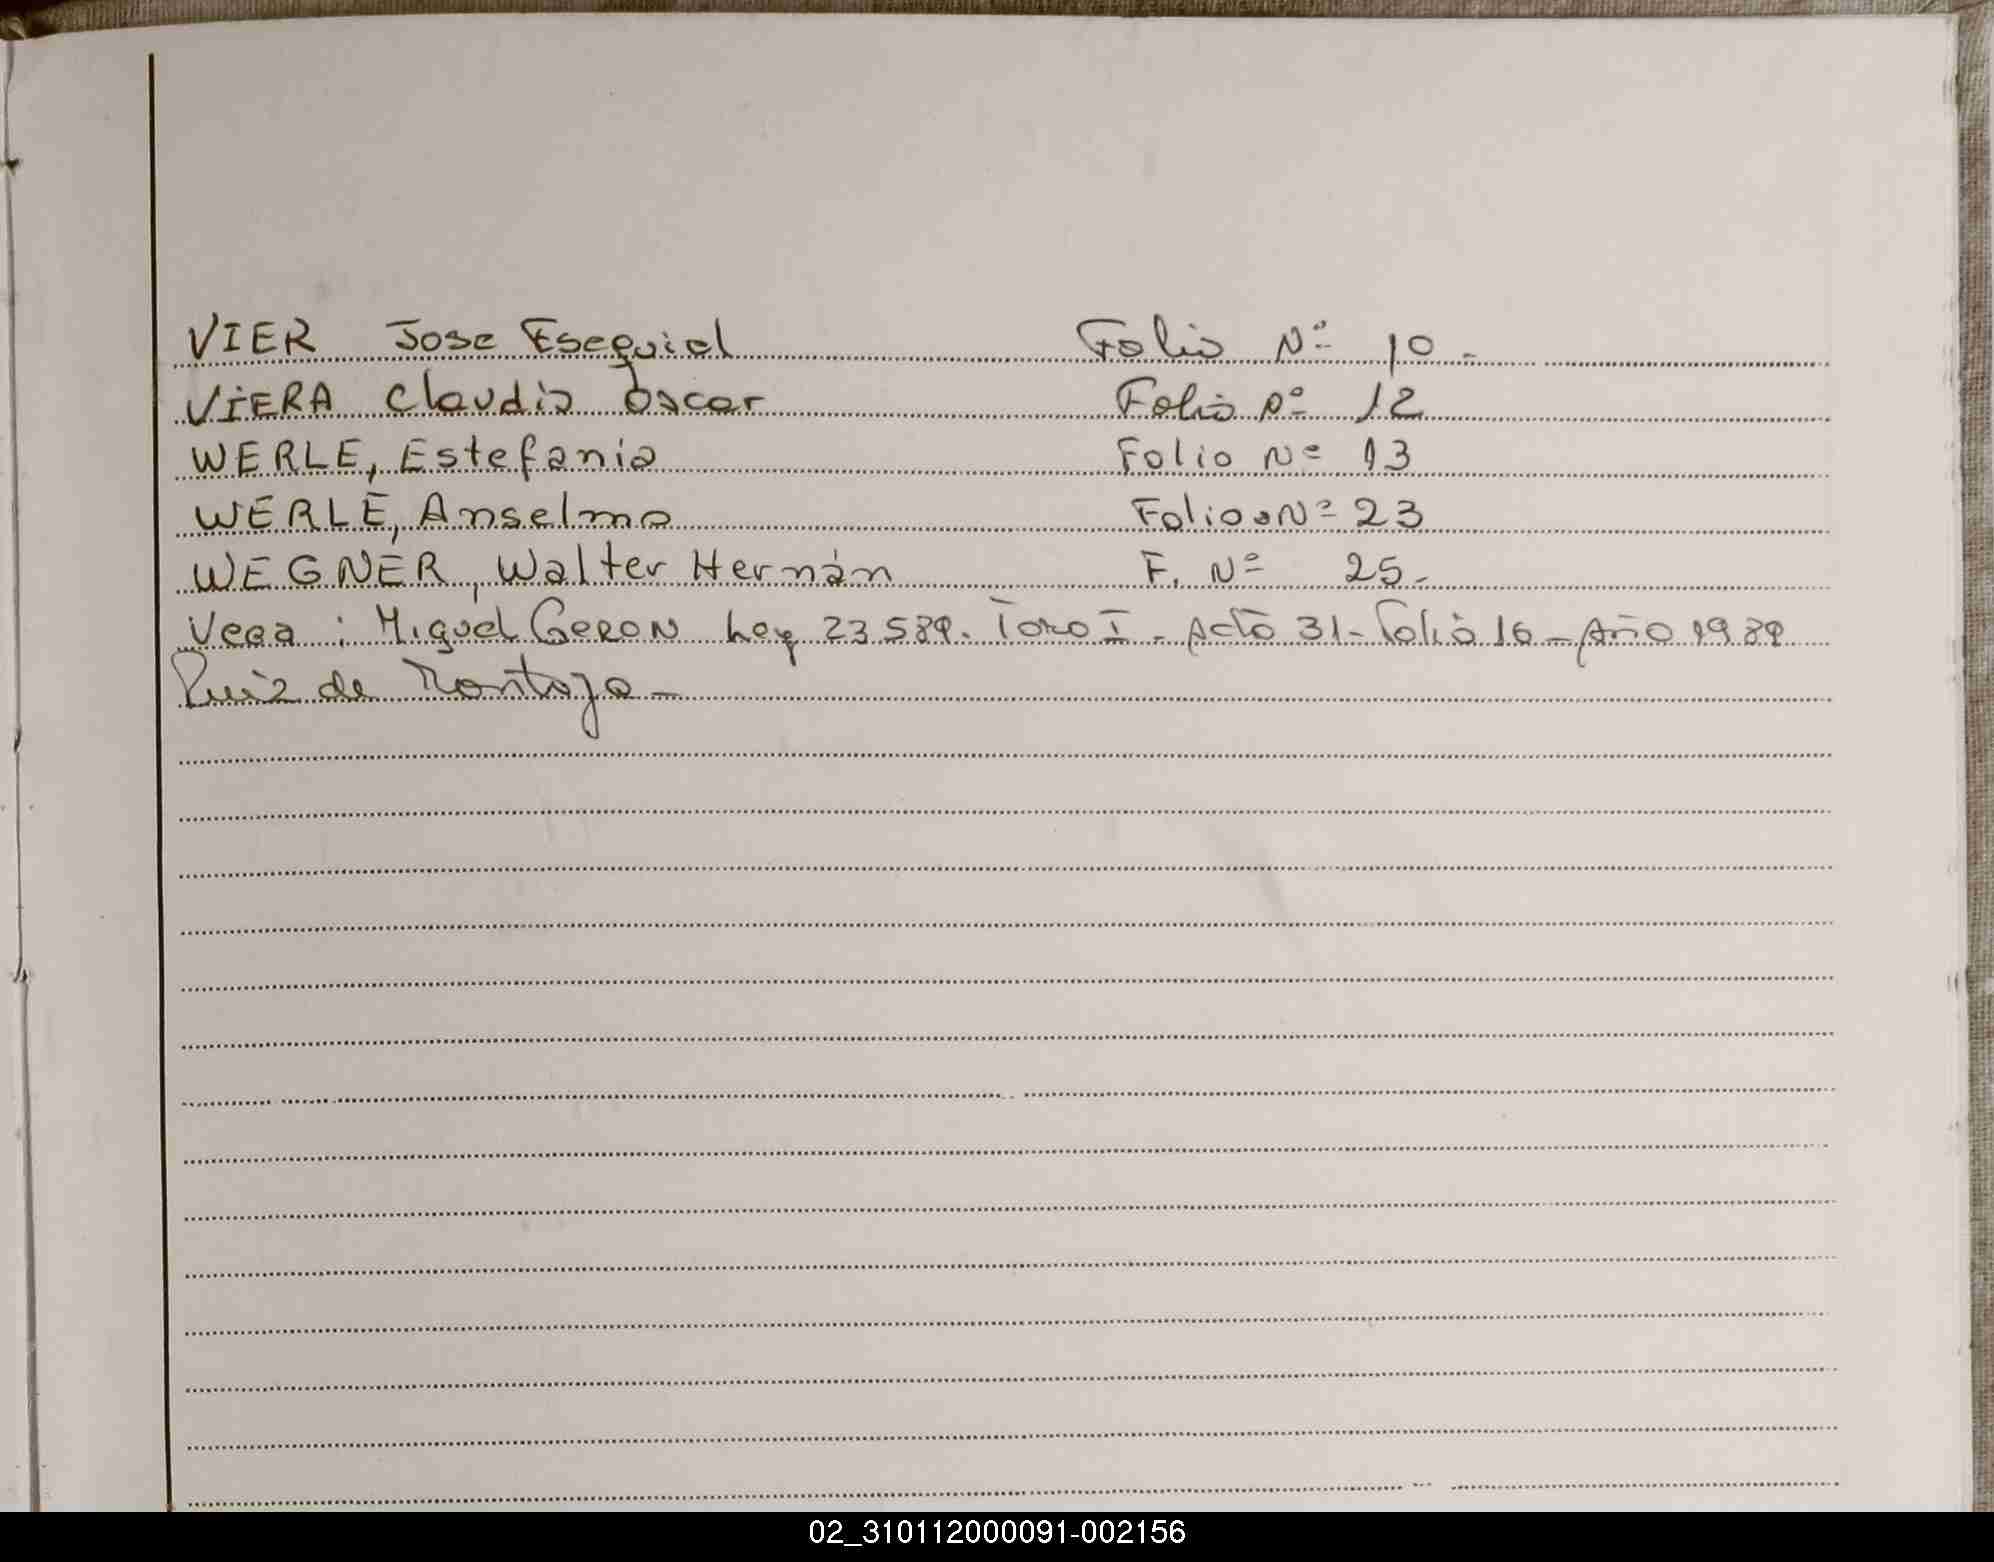 VIER Jose Esequiel Folio Nº 10.-
VIERA Claudio Oscar Folio nº 12
WERLE, Estefania Folio Nº 13
WERLE, Anselmo Folio Nº 23
WEGNER, Walter Hernán F. Nº 25.
Vega : Miguel GERON Ley 23.589. Tomo I - Acta 31 - Folio 16 - Año 1989
Ruiz de Montoya -
02_310112000091-002156